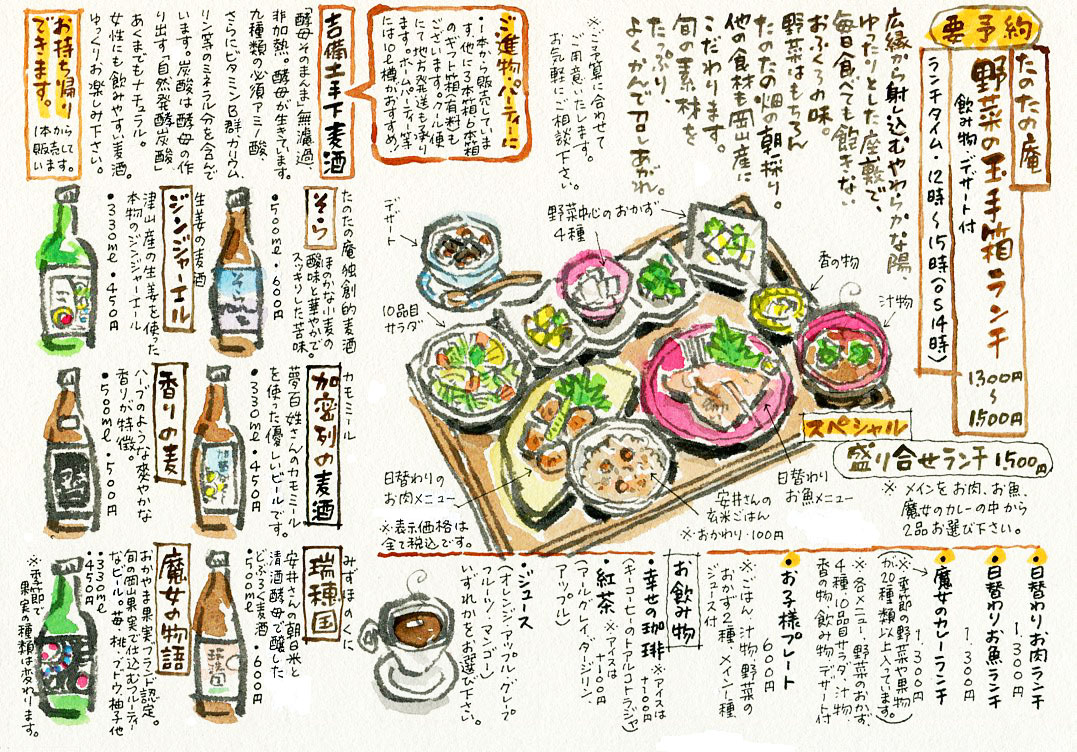 要予約
たのたの庵
野菜の玉手箱ランチ
飲み物・デザート付
1300円
～
1,500円
ランチタイム・12時～15時(OS14時)
広縁から射し込むやわらかな陽、
ゆったりとした座敷で、
毎日食べても飽きない
おふくろの味
野菜はもちろん
たのたの畑の朝採り。
他の食材も岡山産に
こだわります。
旬の素材を
たっぷり、
よくかんで召しあがれ。
※ご予算に合わせて
ご用意いたします。
お気軽にご相談下さい。
ご進物・パーティーに
・1本から販売していま
す。他に3本箱、6本箱
のギフト箱(有料)も
ございます。クール便
にて地方発送も承り
ます。ホームパーティー等
には10ℓ樽がおすすめ。
吉備土手下麦酒
「酵母そのまんま」無濾過、
非加熱。酵母が生きています。
九種類の必須アミノ酸、
さらにビタミンB群、カリウム、
リン等のミネラル分を含んで
います。炭酸は酵母の作
り出す「自然発酵炭酸」
あくまでもナチュラル。
女性にも飲みやすい麦酒。
ゆっくりお楽しみ下さい。
お持ち帰り
できます。
1本から
販売して
います。
野菜中心のおかず
4種
デザート
10品目
サラダ
香の物
汁物
日替わりの
お肉メニュー
安井さんの
玄米ごはん
※おかわり・100円
日替わり
お魚メニュー
※表示価格は
全て税込です。
スペシャル
盛り合せランチ 1,500円
※メインをお肉、お魚、
魔女のカレーの中から
2品お選び下さい。
そら
たのたの庵独創的麦酒
ほのかな小麦の
酸味と華やかで、
スッキリした苦味。
・500ml・600円
ジンジャーエル
生姜の麦酒
津山産の生姜を使った
本物のジンジャーエール
・330ml・450円
カモミール
加密列の麦酒
夢百姓さんのカモミール
を使った優しいビールです。
・330ml・450円
香りの麦
ハーブのような爽やかな
香りが特徴。
・500ml・500円
みずほのくに
瑞穂国
安井さんの朝日米と
清酒酵母で醸した
どぶろく麦酒
・500ml・600円
魔女の物語
おかやま果実ブランド認定。
旬の岡山果実で仕込むフルーティー
なビール。苺、桃、ブドウ、柚子他
・330ml
・450円
※季節で
果実の種類は変わります。
日替わりお肉ランチ
1,300円
日替わりお魚ランチ
1,300円
魔女のカレーランチ
1,300円
(※季節の野菜や果物
が20種類以上入ってます。)
※各メニュー、野菜のおかず、
4種、10品目サラダ、汁物、
香の物、飲み物、デザート付
お子様プレート
600円
※ごはん、汁物、野菜の
おかず2種、メイン1種
ジュース付
お飲み物
・幸せの珈琲 ※アイスは
+100円
(キーコーヒーのトアルコトラジャ)
・紅茶 ※アイスは
+100円
(アールグレイ、ダージリン
アップル)
・ジュース
(オレンジ・アップル・グレープ
フルーツ・マンゴー)
いずれかをお選び下さい。